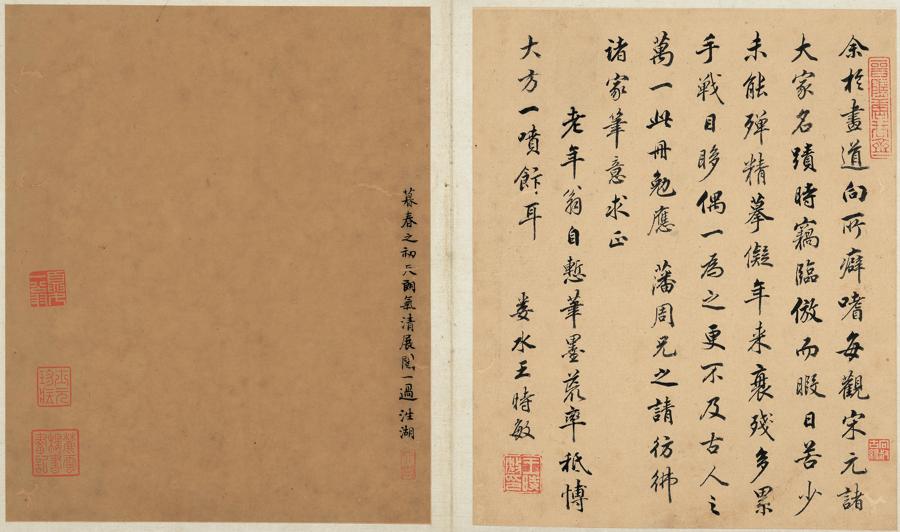 余於畫道向所癖嗜每觀宋元諸
大家名蹟時竊臨倣而暇日苦少
未能殫精摹儗年来衰殘多累
手戰目眵偶一為之更不及古人之
萬一此冊勉應 藩周兄之請彷彿
諸家筆意求正
老年翁自慙筆墨荒率秪愽
大方一噴飰耳
婁水王時敏
暮春之初 雨氣清展閱一過 湖